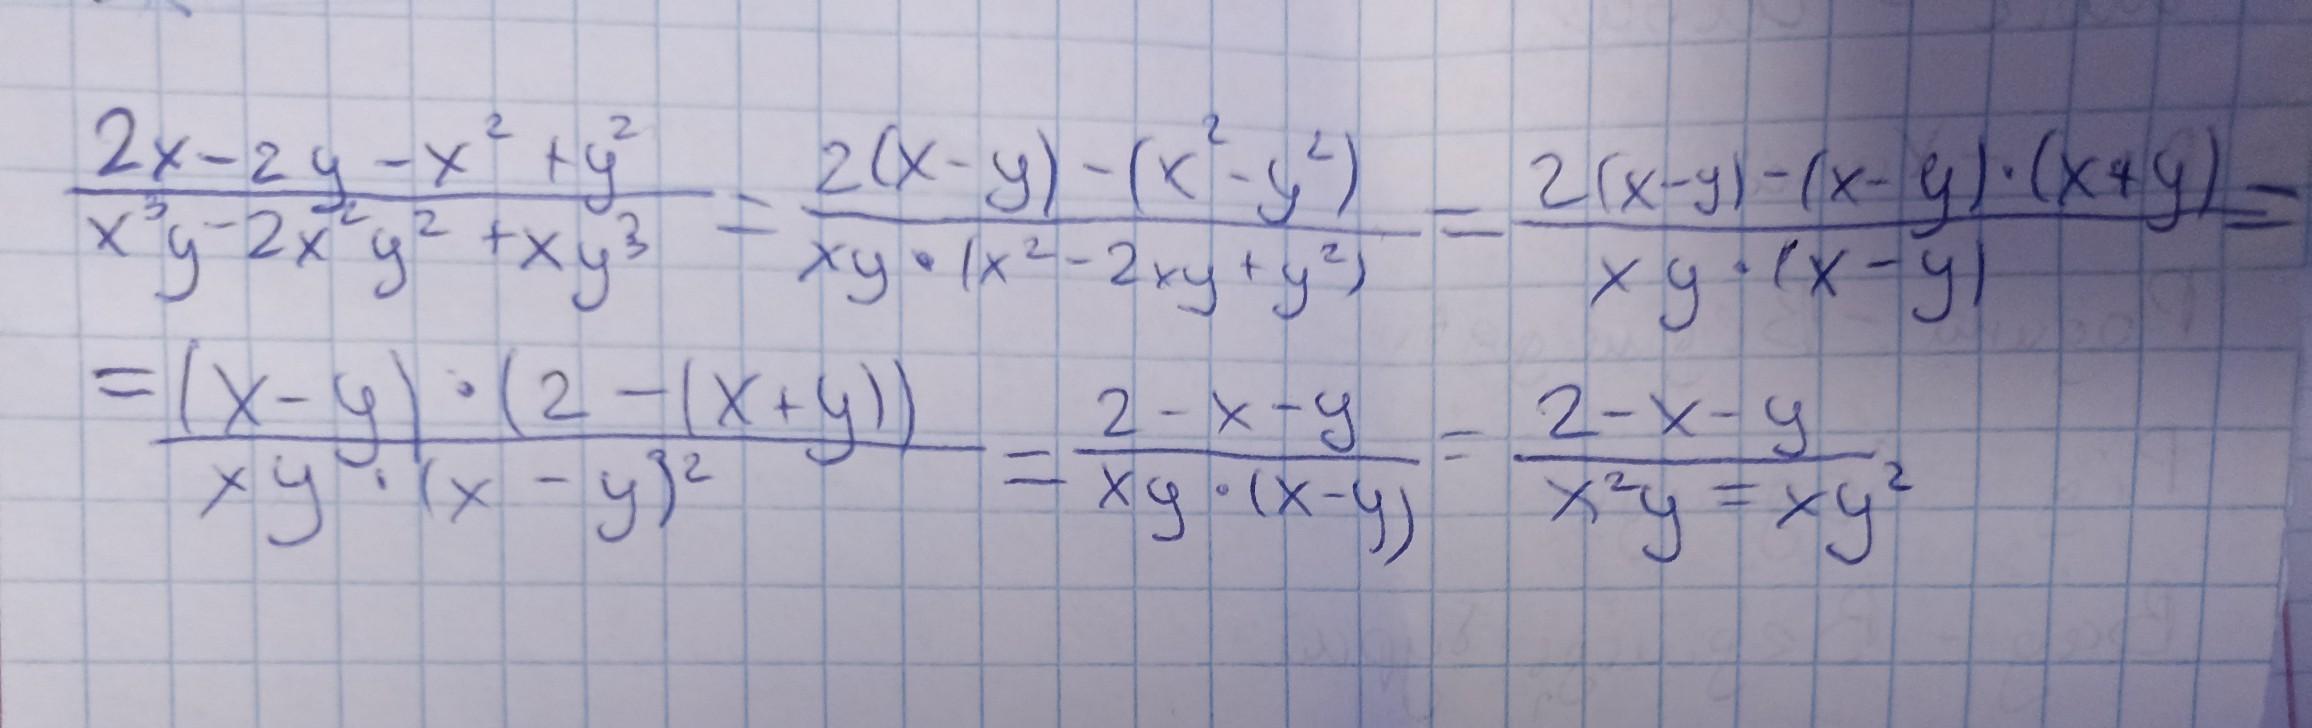 (2x-2y-x²+y²)/(x³y-2x²y²+xy³) = (2(x-y)-(x²-y²))/(xy·(x²-2xy+y²)) = (2(x-y)-(x-y)·(x+y))/(xy·(x-y)) =
= ((x-y)·(2-(x+y)))/(xy·(x-y)²) = (2-x-y)/(xy·(x-y)) = (2-x-y)/(x²y=xy²)